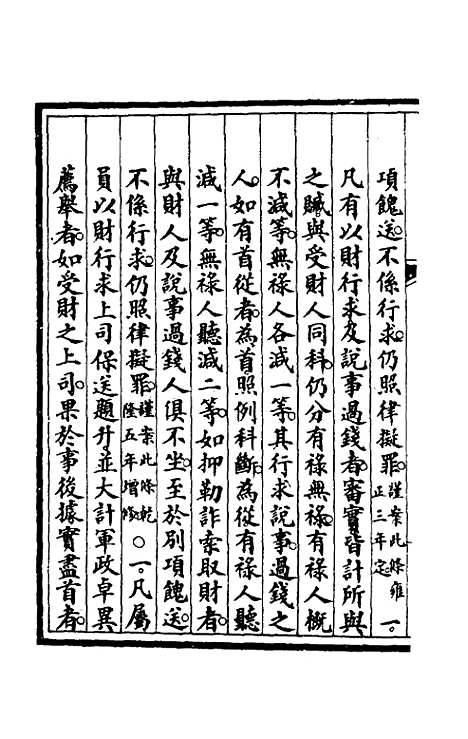 項餽送不係行求仍照律擬罪謹案此條雍正三年定一。
凡有以財行求及說事過錢者審實皆計所與
之贓與受財人同科仍分有祿無祿有祿人概
不減等無祿人各減一等其行求說事過錢之
人如有首從者為首照例科斷為從有祿人聽
減一等無祿人聽減二等如抑勒詐索取財者
與財人及說事過錢人俱不坐至於別項餽送
不係行求仍照律擬罪謹案此條乾隆五年增修〇一。凡屬
員以財行求上司保送題升並大計軍政卓異
薦舉者如受財之上司果於事後據實盡首者